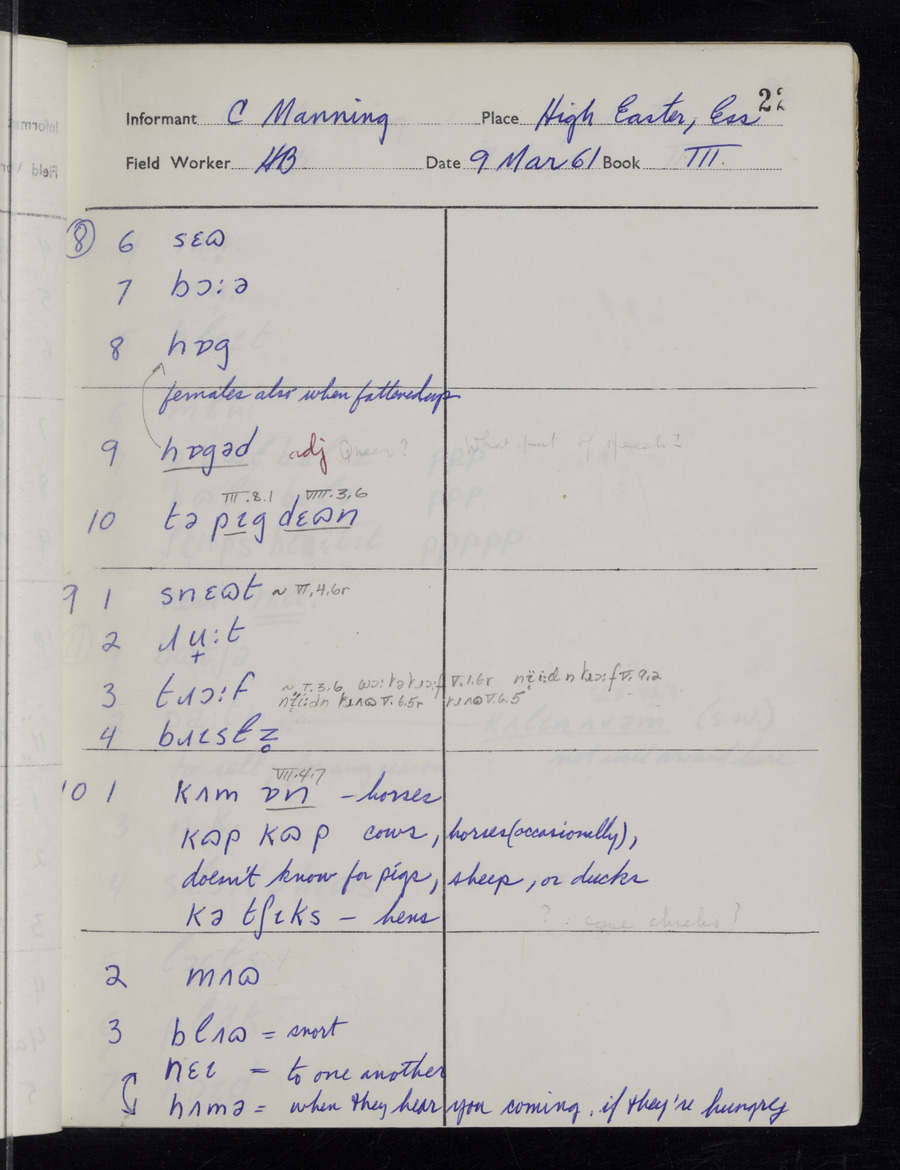 22
Informant C Manning Place High Easter, Ess
Field Worker HB Date 9 Mar 61 Book III.
⑧ 6 sɛɷ
7 bɔ:ə
8 hɒg
females also when fattened up
9 hɒgəd adj Queer? What part of speech?
III.8.1 VIII.3.6
10 tə pɩg dɛɷn
9 1 snɛɷt ~ VI.4.6r
2 ɹʉ̟:t
3 tɹɔ:f ~ I.3.6 V.1.6r V.9.2
V.6.5r V.6.5
4 bɹɩstl̩z̥
VII.4.7
10 1 kʌm ɒn – horses
kɷp kɷp cows, horses (occasionally),
doesn't know for pigs, sheep, or ducks
kə tʃɩks – hens ? come chicks?
2 mʌɷ
3 blʌɷ = snort
nɛɩ = to one another
hʌmə = when they hear you coming, if they're hungry